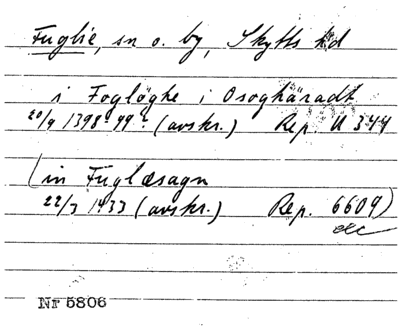 Fuglie, sn o. by, Skytts hd
i Fogløghe i Osoghäradt
20/9 1398-99? (avskr.) Rep. II 344
(in Fuglæsagn
22/3 1433 (avskr.) Rep. 6609)
Nr 5806